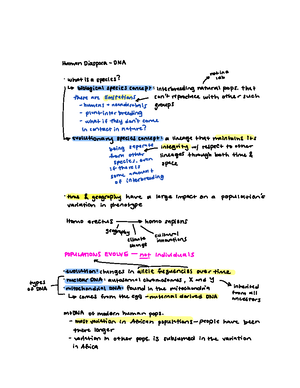 Human Diaspora - DNA
not in a lab
· what is a species?
↳ biological species concept: interbreeding natural pops. that can't reproduce with other such groups
there are limitations
- humans + neanderthals
- print inter breeding
- what if they don't come in contact in nature?
↳ evolutionary species concept: a lineage that maintains its integrity w/ respect to other lineages through both time & space
being separate from other species, even if there is some amount of interbreeding
· time & geography have a large impact on a population's variation in phenotype
Homo erectus → homo sapiens
geography
climate change
cultural innovations
POPULATIONS EVOLVE - not individuals
· evolution: changes in allele frequencies over time
types of DNA
· nuclear DNA: autosomal chromosomes, X and Y → inherited from all ancestors
· mitochondrial DNA: found in the mitochondria
↳ comes from the egg - maternal derived DNA
mtDNA of modern human pops.
- most variation in African populations - people have been there longer
- variation in other pops is subsumed in the variation in Africa